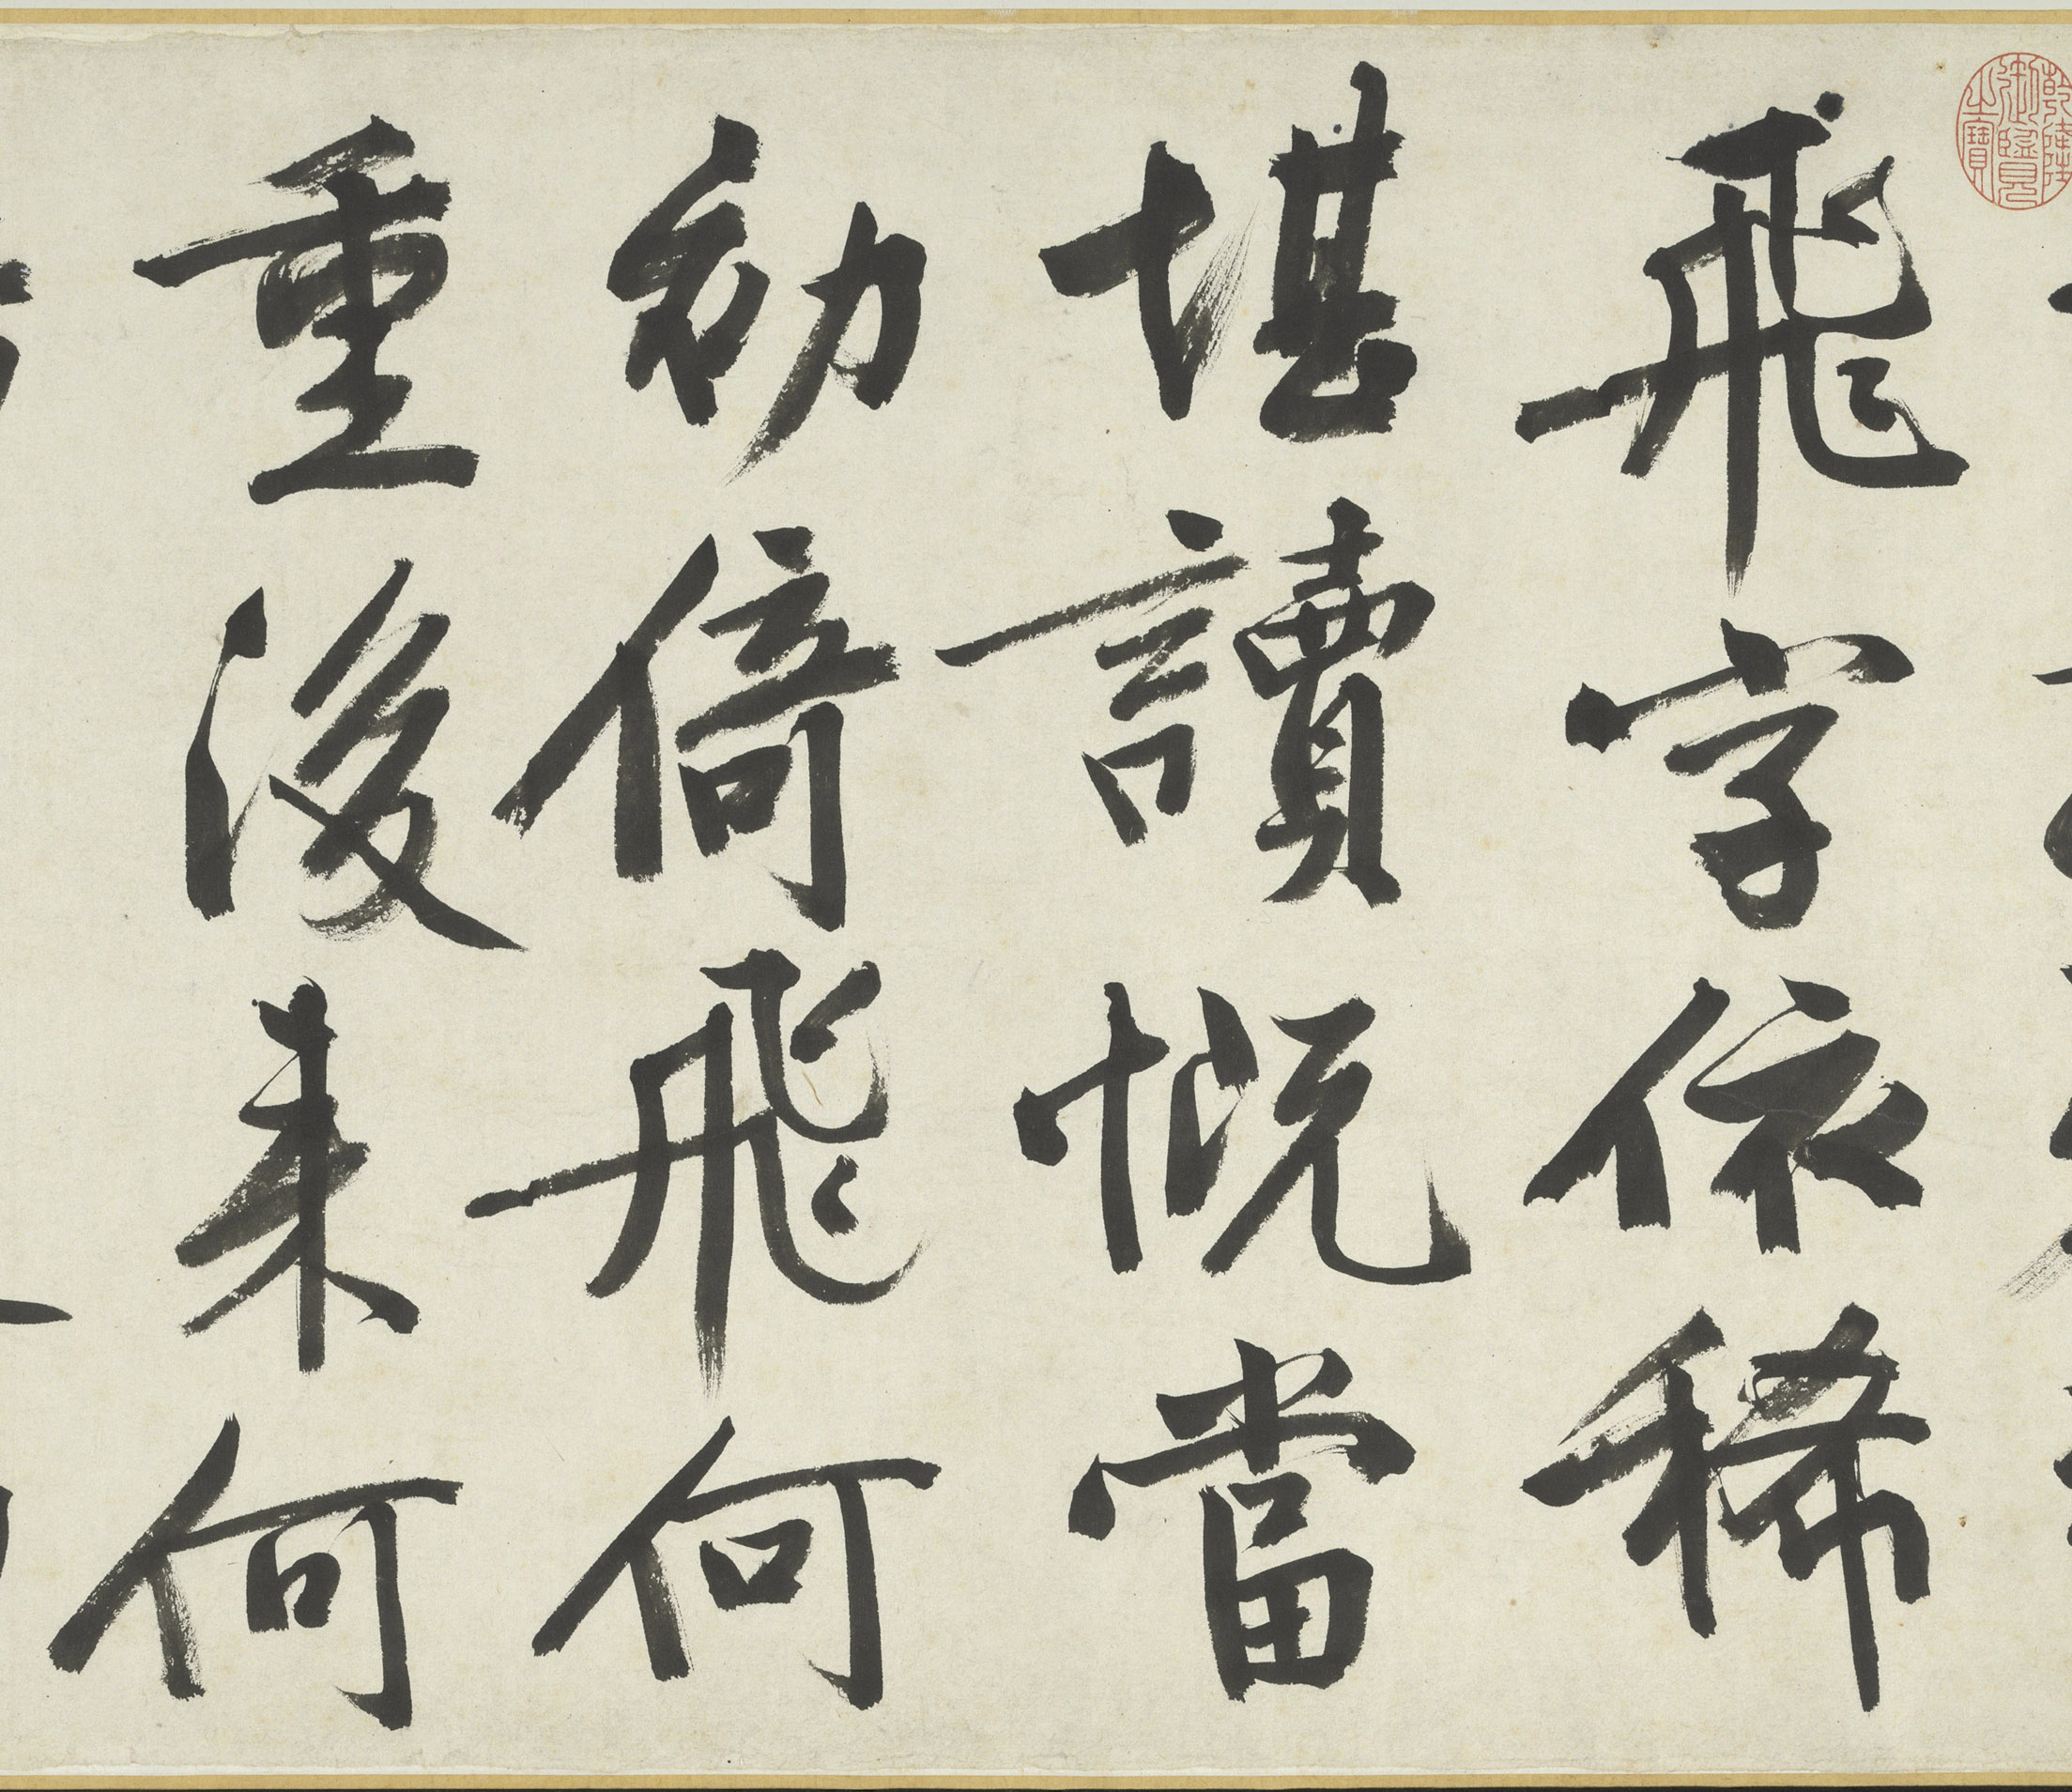 乾隆御覽之寶
飛字依稀
堪讀慨當
初倚飛何
重後来何